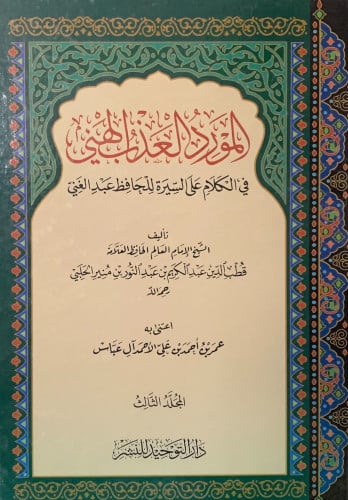 المورد العذب الهني
في الكلام على السيرة للحافظ عبد الغني
تأليف
الشيخ الإمام العالم الحافظ العلامة
قطب الدين عبد الكريم بن عبد النور بن منير الحلبي
رحمه الله
اعتنى به
عمر بن أحمد بن علي الأحمد آل عباس
المجلد الثالث
دار التوحيد للنشر